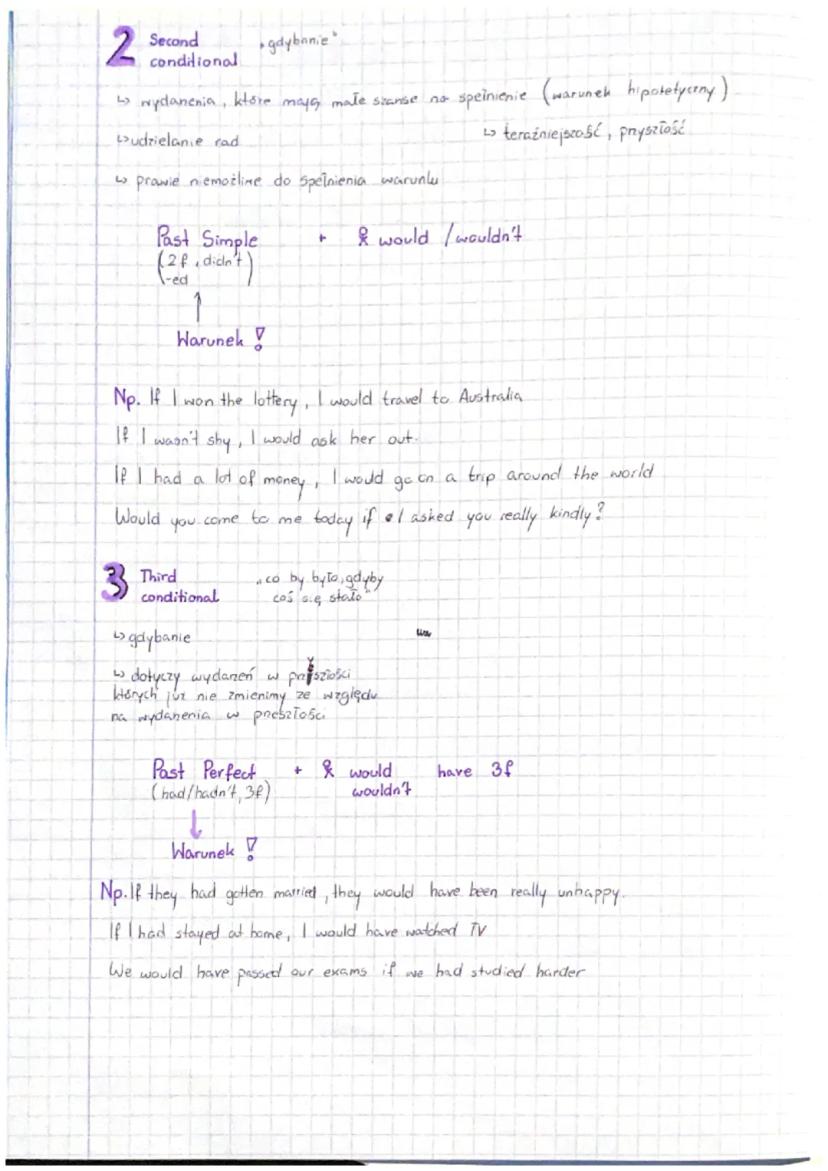 2 Second conditional „gdybanie"
↳ wydarzenia, które mają małe szanse na spełnienie (warunek hipotetyczny)
↳ udzielanie rad
↳ teraźniejszość, przyszłość
↳ prawie niemożliwe do spełnienia warunku
Past Simple + would / wouldn't
(2f, didn't
-ed)
Warunek !
Np. If I won the lottery, I would travel to Australia
If I wasn't shy, I would ask her out.
If I had a lot of money, I would go on a trip around the world
Would you come to me today if I asked you really kindly?
3 Third conditional „co by było, gdyby
coś się stało"
↳ gdybanie
↳ dotyczy wydarzeń w przyszłości
których już nie zmienimy ze względu
na wydarzenia w przeszłości
Past Perfect + would have 3f
(had/hadn't, 3f) wouldn't
Warunek !
Np. If they had gotten married, they would have been really unhappy.
If I had stayed at home, I would have watched TV
We would have passed our exams if we had studied harder